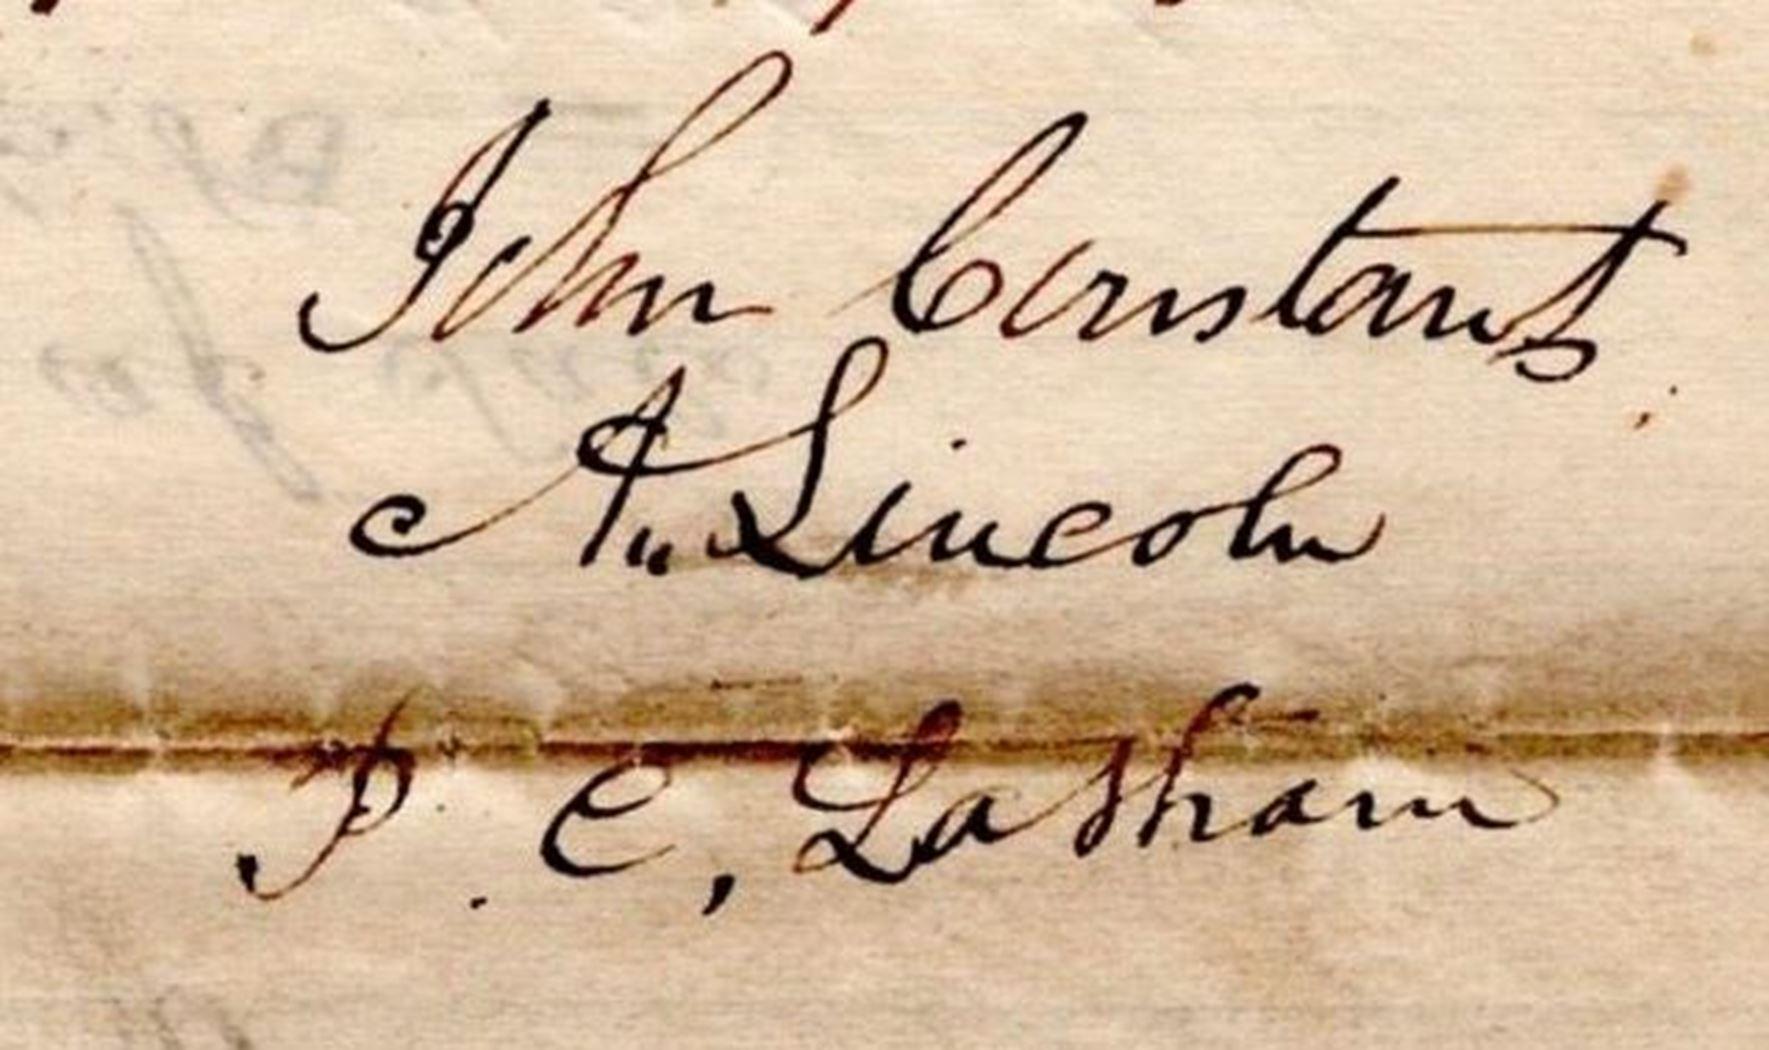 John Constant
A. Lincoln
P. C. Latham